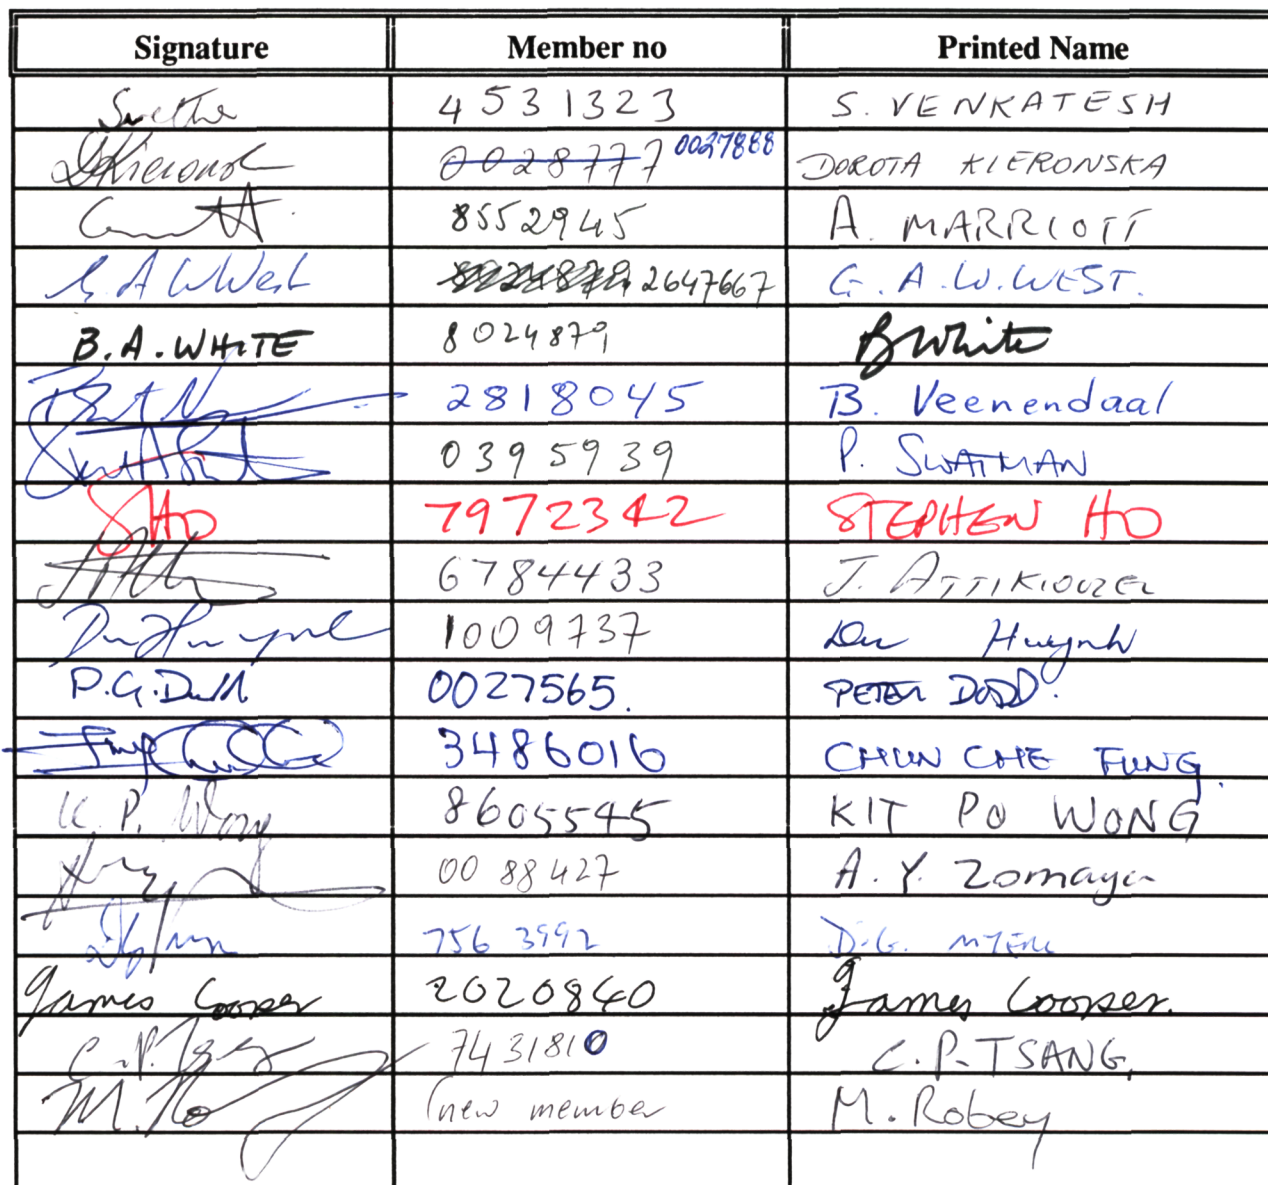 Signature Member no Printed Name
4531323 S. VENKATESH
0028777 0027888 DOROTA KIERONSKA
8552945 A. MARRIOTT
G.A.W.West 8024879 2647667 G.A.W.WEST.
B.A.WHITE 8024879 B White
2818045 B. Veenendaal
0395939 P. SWATMAN
SHO 7972342 STEPHEN HO
6784433 J. ATTIKIOUZEL
Du Huynh 1009737 Du Huynh
P.G.Dodd. 0027565. PETER DODD.
3486016 CHUN CHE FUNG.
K. P. Wong 8605545 KIT PO WONG
0088427 A. Y. Zomaya
756 3992 D.G. MYERS
James Cooper 2020840 James Cooper.
C.P. Tsang 7431810 C.P.TSANG,
new member M. Robey